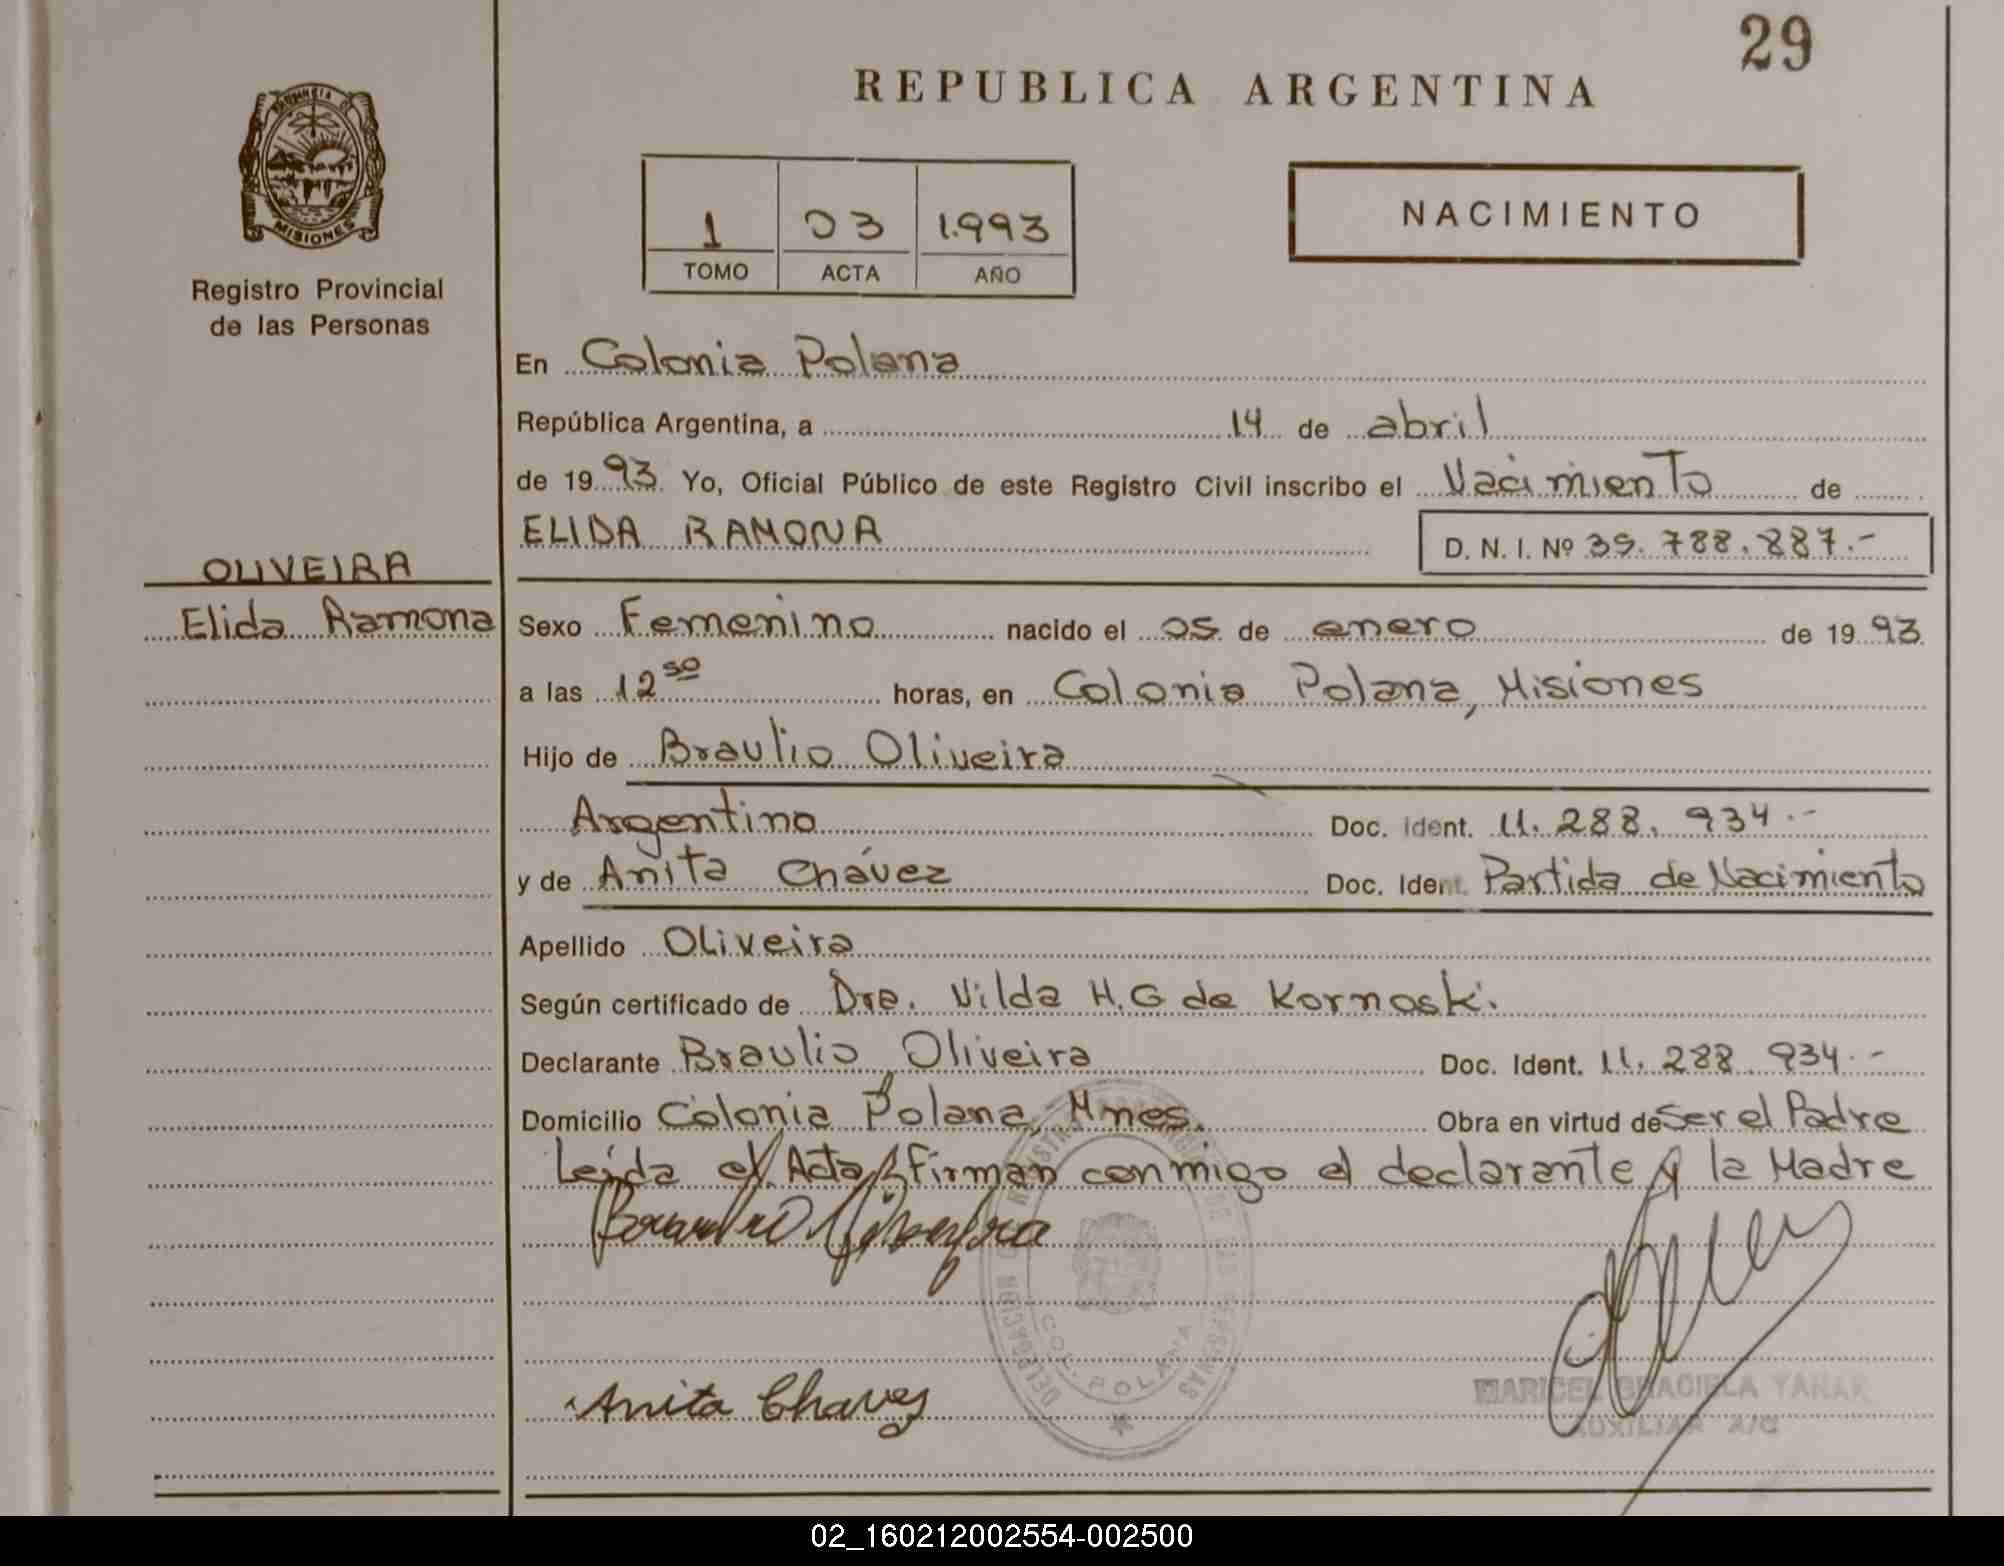 29
REPUBLICA ARGENTINA
PROVINCIA D
MISIONES
Registro Provincial
de las Personas
1 03 1.993
TOMO ACTA AÑO
NACIMIENTO
En Colonia Polana
República Argentina, a 14 de abril
de 1993. Yo, Oficial Público de este Registro Civil inscribo el Nacimiento de
ELIDA RAMONA D. N. I. Nº 39.788.887.-
OLIVEIRA
Elida Ramona
Sexo Femenino nacido el 05 de enero de 1993
a las 12 50 horas, en Colonia Polana, Misiones
Hijo de Braulio Oliveira
Argentino Doc. Ident. 11.288.934.-
y de Anita Chávez Doc. Ident. Partida de Nacimiento
Apellido Oliveira
Según certificado de Dra. Nilda H.G de Kornoski.
Declarante Braulio Oliveira Doc. Ident. 11.288.934.-
Domicilio Colonia Polana, Mnes. Obra en virtud de Ser el Padre
Leída el Acta, firman conmigo el declarante y la Madre
Anita Chavez
DELEGACION REGISTRO PROVINCIAL DE LAS PERSONAS
COL. POLANA
MARICEL GRACIELA YANAK
AUXILIAR A/C
02_160212002554-002500